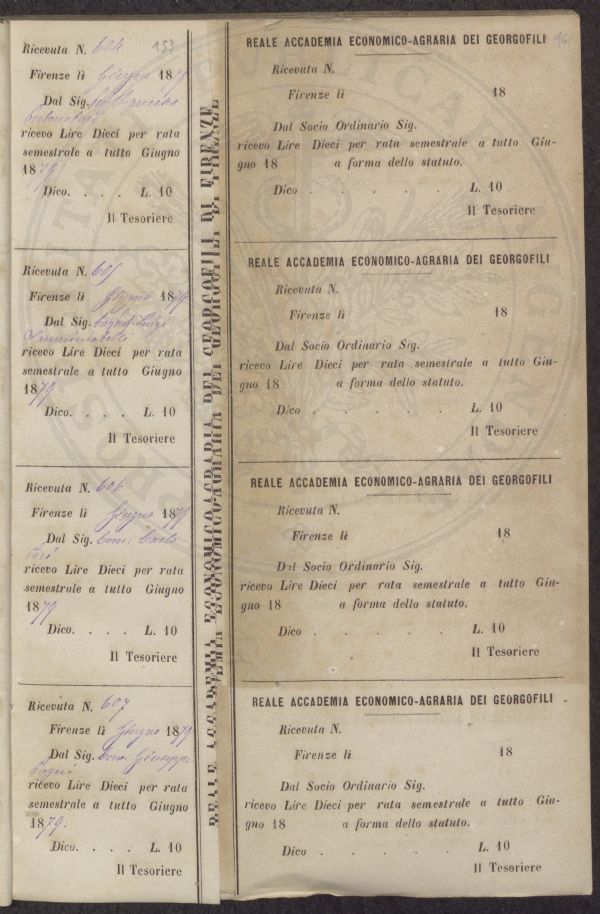 153
Ricevuta N. 604
Firenze li Giugno 1879
Dal Sig.
ricevo Lire Dieci per rata
semestrale a tutto Giugno
1879
Dico. . . . L. 10
Il Tesoriere
Ricevuta N. 605
Firenze li Giugno 1879
Dal Sig. Luigi
ricevo Lire Dieci per rata
semestrale a tutto Giugno
1879
Dico. . . . L. 10
Il Tesoriere
Ricevuta N. 606
Firenze li Giugno 1879
Dal Sig. Com: Carlo
ricevo Lire Dieci per rata
semestrale a tutto Giugno
1879
Dico. . . . L. 10
Il Tesoriere
Ricevuta N. 607
Firenze li Giugno 1879
Dal Sig. Giuseppe
ricevo Lire Dieci per rata
semestrale a tutto Giugno
1879.
Dico. . . . L. 10
Il Tesoriere
REALE ACCADEMIA ECONOMICO-AGRARIA DEI GEORGOFILI DI FIRENZE
REALE ACCADEMIA ECONOMICO-AGRARIA DEI GEORGOFILI
Ricevuta N.
Firenze li 18
Dal Socio Ordinario Sig.
ricevo Lire Dieci per rata semestrale a tutto Giu-
gno 18 a forma dello statuto.
Dico . . . . . L. 10
Il Tesoriere
REALE ACCADEMIA ECONOMICO-AGRARIA DEI GEORGOFILI
Ricevuta N.
Firenze li 18
Dal Socio Ordinario Sig.
ricevo Lire Dieci per rata semestrale a tutto Giu-
gno 18 a forma dello statuto.
Dico . . . . . L. 10
Il Tesoriere
REALE ACCADEMIA ECONOMICO-AGRARIA DEI GEORGOFILI
Ricevuta N.
Firenze li 18
Dal Socio Ordinario Sig.
ricevo Lire Dieci per rata semestrale a tutto Giu-
gno 18 a forma dello statuto.
Dico . . . . . L. 10
Il Tesoriere
REALE ACCADEMIA ECONOMICO-AGRARIA DEI GEORGOFILI
Ricevuta N.
Firenze li 18
Dal Socio Ordinario Sig.
ricevo Lire Dieci per rata semestrale a tutto Giu-
gno 18 a forma dello statuto.
Dico . . . . . L. 10
Il Tesoriere